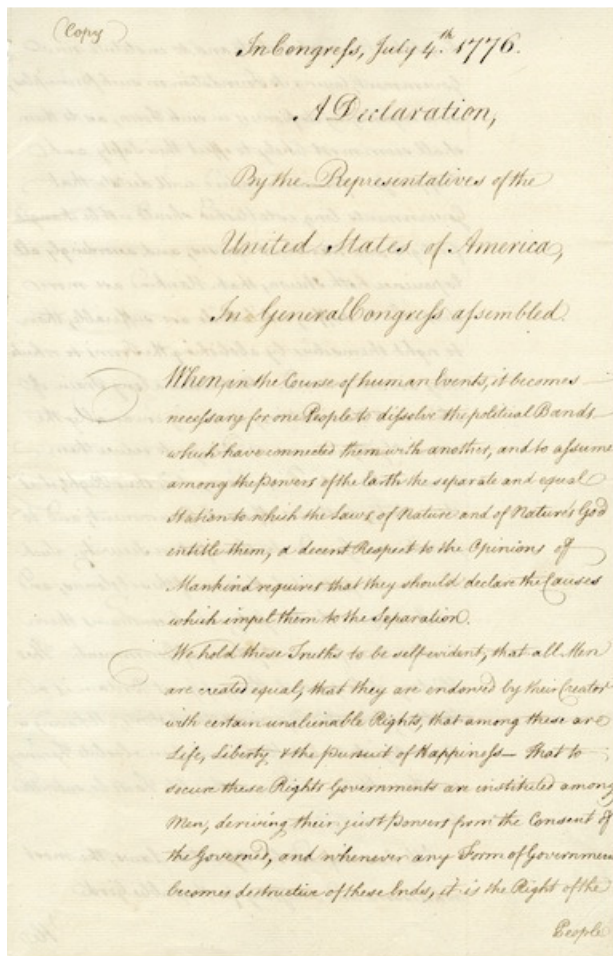 (Copy)
In Congress, July 4th. 1776.
A Declaration,
By the Representatives of the
United States of America,
In General Congress assembled.
When, in the Course of human Events, it becomes
necessary for one People to dissolve the political Bands
which have connected them with another, and to assume
among the Powers of the Earth the separate and equal
Station to which the Laws of Nature and of Nature's God
entitle them, a decent Respect to the Opinions of
Mankind requires that they should declare the Causes
which impel them to the Separation.
We hold these Truths to be self evident, that all Men
are created equal, that they are endowed by their Creator
with certain unalienable Rights, that among these are
Life, Liberty, & the Pursuit of Happiness— That to
secure these Rights Governments are instituted among
Men, deriving their just Powers from the Consent of
the Governed, and whenever any Form of Government
becomes destructive of these Ends, it is the Right of the
People